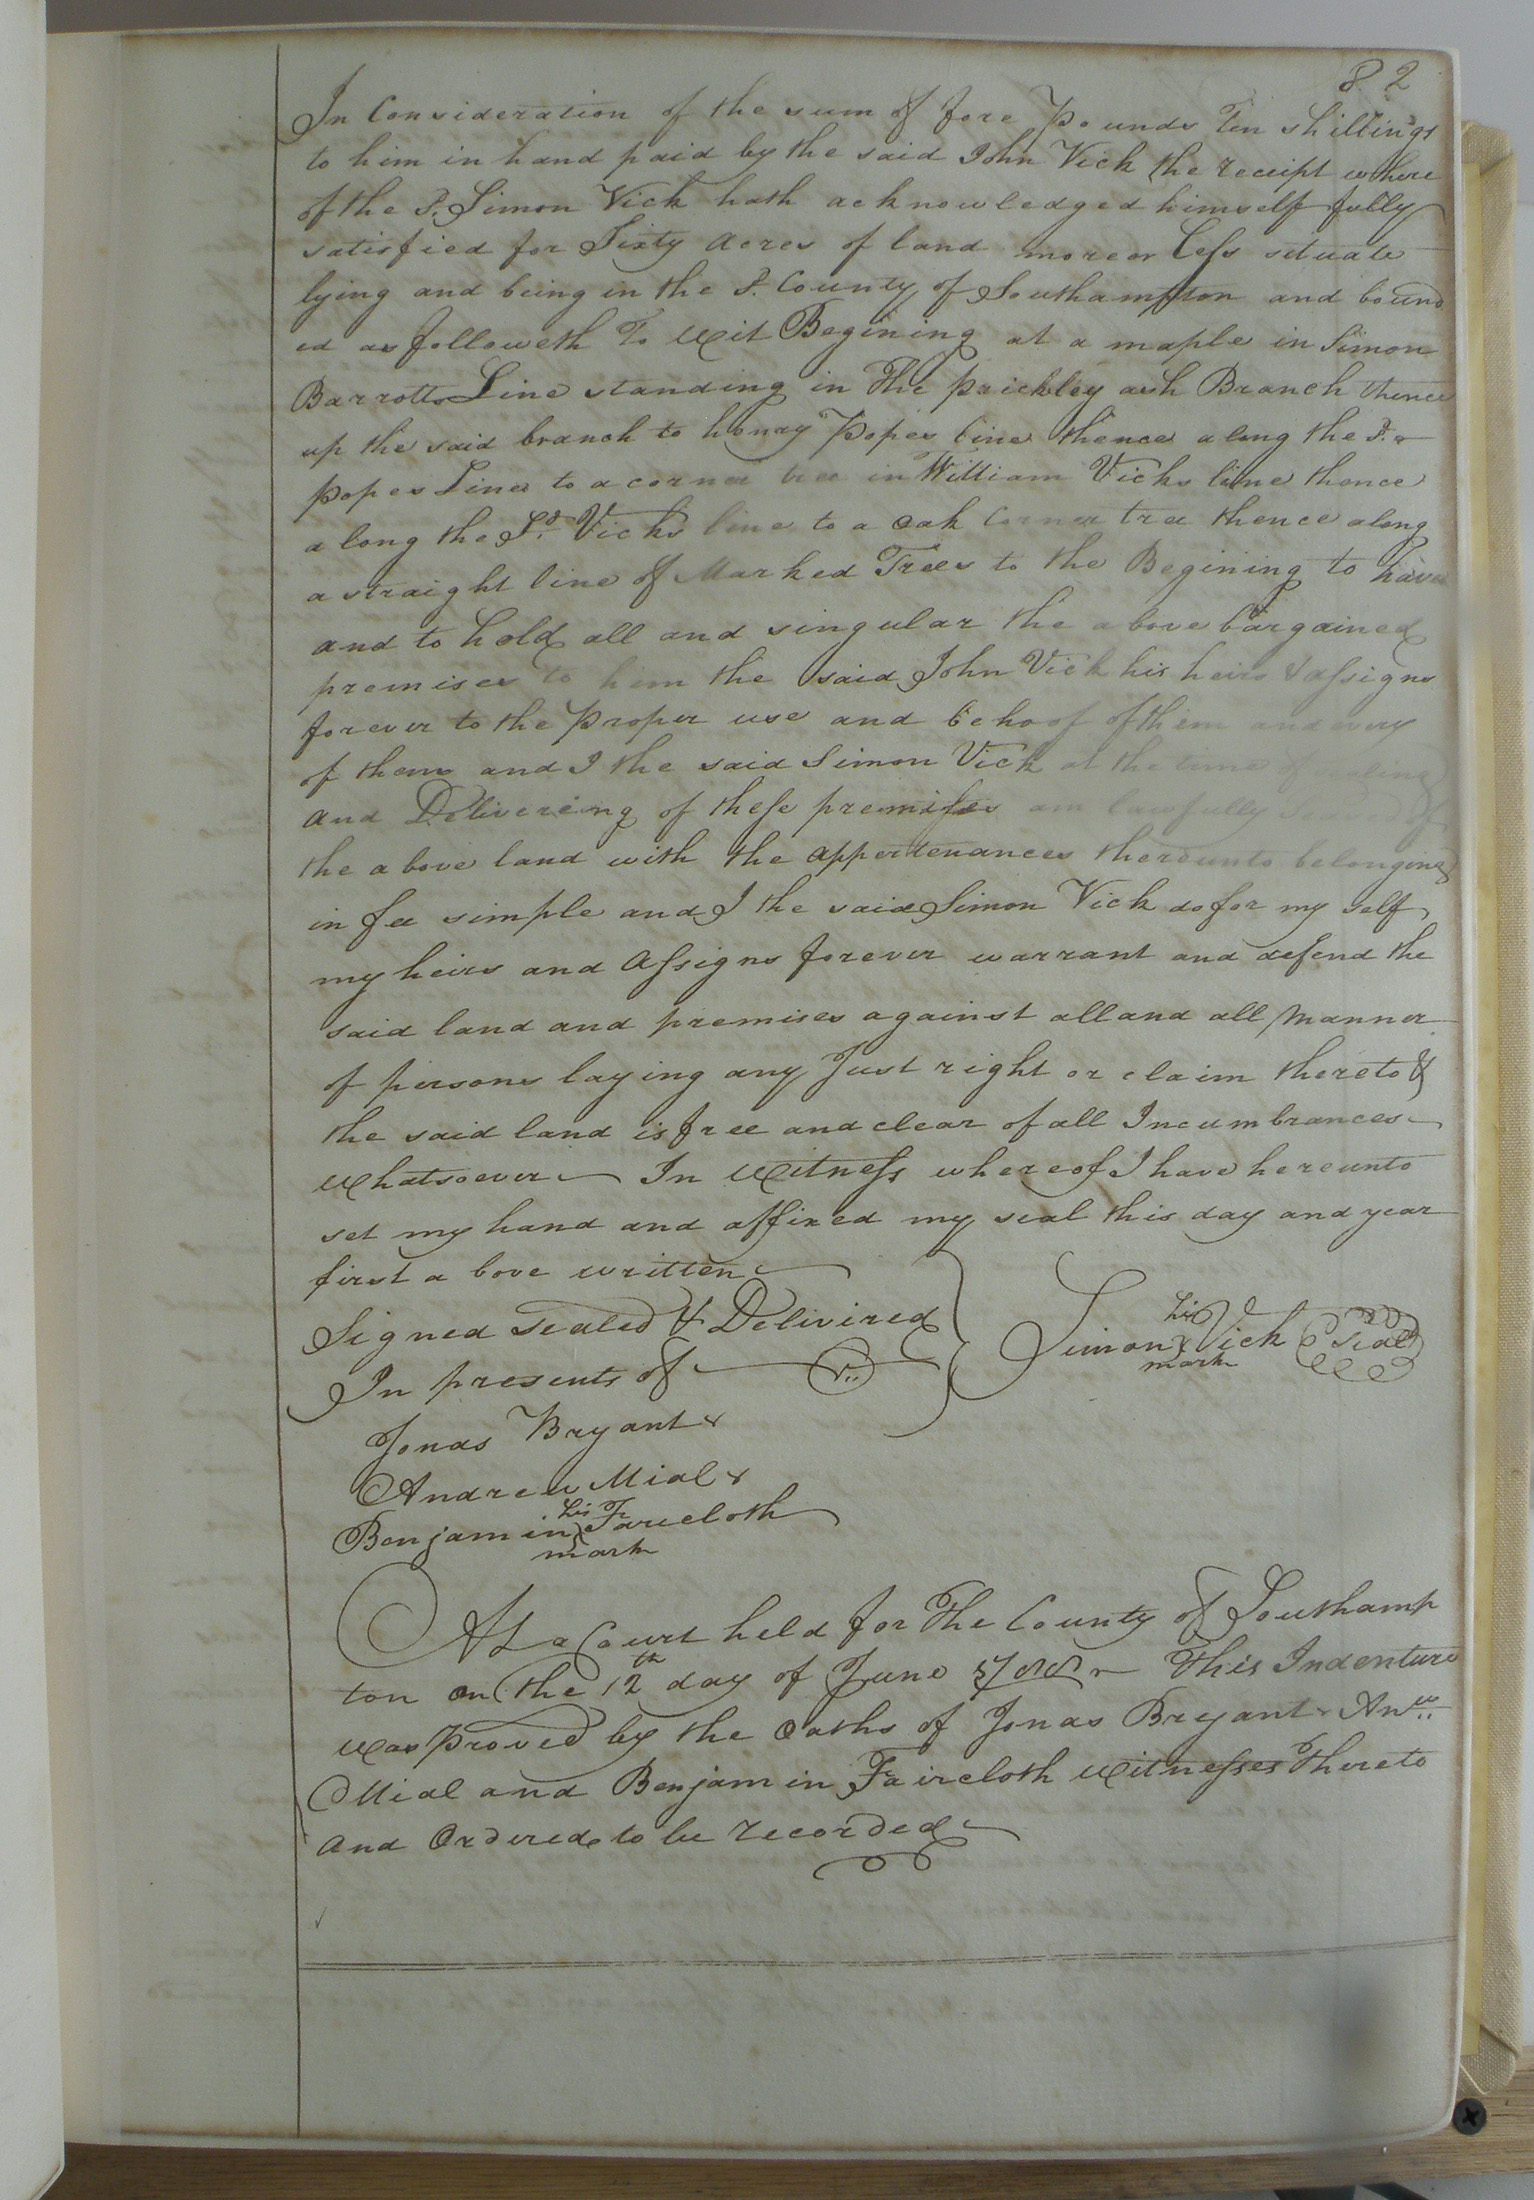 82
In Consideration of the sum of fore Pounds Ten shillings
to him in hand paid by the said John Vick the receipt where
of the S. Simon Vick hath acknowledged himself fully
satisfied for Sixty acres of land more or Less situate
lying and being in the S. County of Southampton and bound
ed as followeth To Wit Begining at a maple in Simon
Barrotts Line standing in The prickley ash Branch thence
up the said branch to henry Popes line thence along the S.
popes Line to a corner tree in William Vicks line thence
along the Sd. Vicks line to a oak Corner tree thence along
a straight line of Marked Trees to the Begining to have
and to hold all and singular the above bargained
premises to him the said John Vick his heirs & assigns
forever to the proper use and behoof of them and every
of them and I the said Simon Vick at the time of sealing
and Delivereing of these premises am lawfully seized of
the above land with the appertenances thereunto belonging
in fee simple and I the said Simon Vick do for my self
my heirs and assigns forever warrant and defend the
said land and premises against all and all manner
of persons laying any Just right or claim thereto &
the said land is free and clear of all Incumbrances
Whatsoever In Witness whereof I have hereunto
set my hand and affixed my seal this day and year
first above written
Signed Sealed & Delivired
In presents of
his
Simon X Vick seal
mark
Jonas Bryant
Andrew Mial
his
Benjamin Faircloth
mark
At a Court held for The County of Southamp
ton on the 12th day of June This Indenture
was proved by the Oaths of Jonas Bryant Anw.
Mial and Benjamin Faircloth Witnesses Thereto
and Ordered to be recorded